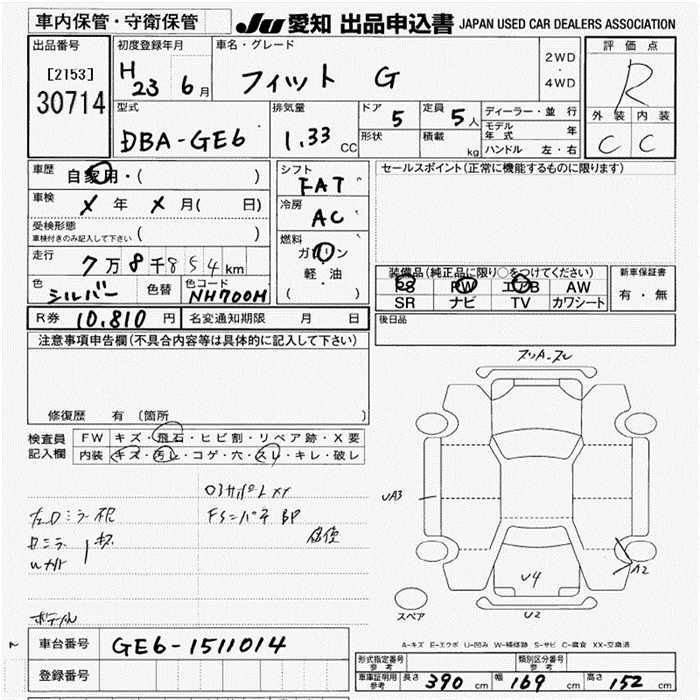 車内保管・守衛保管
JU 愛知 出品申込書 JAPAN USED CAR DEALERS ASSOCIATION
出品番号
[2153]
30714
初度登録年月
H 23 6月
車名・グレード
フィット G
2WD
・
4WD
評価点
R
外装 内装
C C
型式
DBA-GE6
排気量
1.33 CC
ドア 5
形状
定員 5人
積載 kg
ディーラー・並行
モデル年式 年
ハンドル 左・右
車歴 自家用・( )
車検 X年 X月( 日)
受検形態
車検付きのみ記入して下さい ( )
走行 7万8千854km
色 シルバー 色替 色コード NH700M
シフト
FAT
冷房
AC
燃料
ガソリン
・
軽・油
( )
セールスポイント(正常に機能するものに限ります)
装備品(純正品に限り○をつけてください)
PS PW エアB AW
SR ナビ TV カワシート
新車保証書
有・無
R券 10,810円 名変通知期限 月 日
後日品
注意事項申告欄(不具合内容等は具体的に記入して下さい)
修復歴 有(箇所
検査員
記入欄
FW キズ・飛石・ヒビ割・リペア跡・X要
内装 キズ・汚レ・コゲ・穴・スレ・キレ・破レ
UA3
A2
U4
U2
スペア
A-キズ E-エクボ U-凹み W-補修跡 S-サビ C-腐食 XX-交換済
車台番号 GE6-1511014
登録番号
形式指定番号
参考
類別区分番号
参考
車庫証明用
参考
長さ 390cm 幅 169cm 高さ 152cm